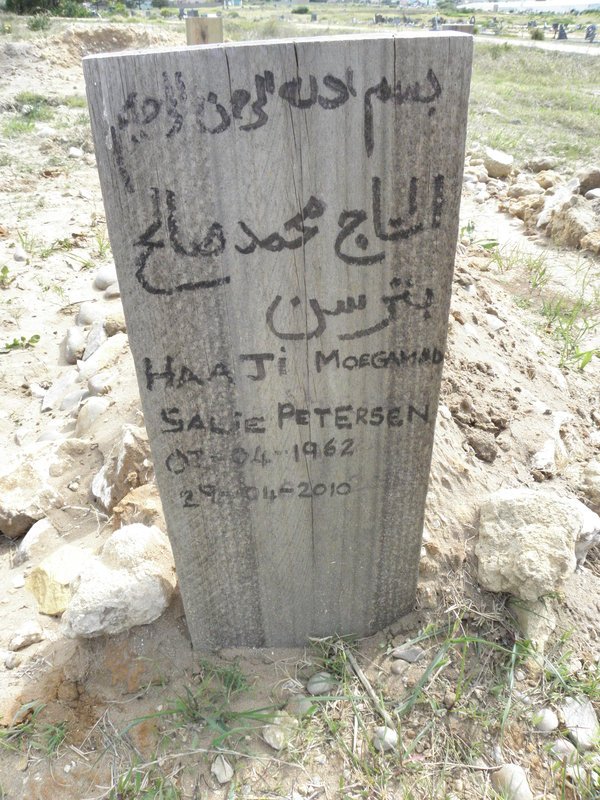 بسم الله الرحمن الرحيم
الحاج محمد صالح
بترسن
HAAJi MOEGAMAD
SALIE PETERSEN
07-04-1962
29-04-2010